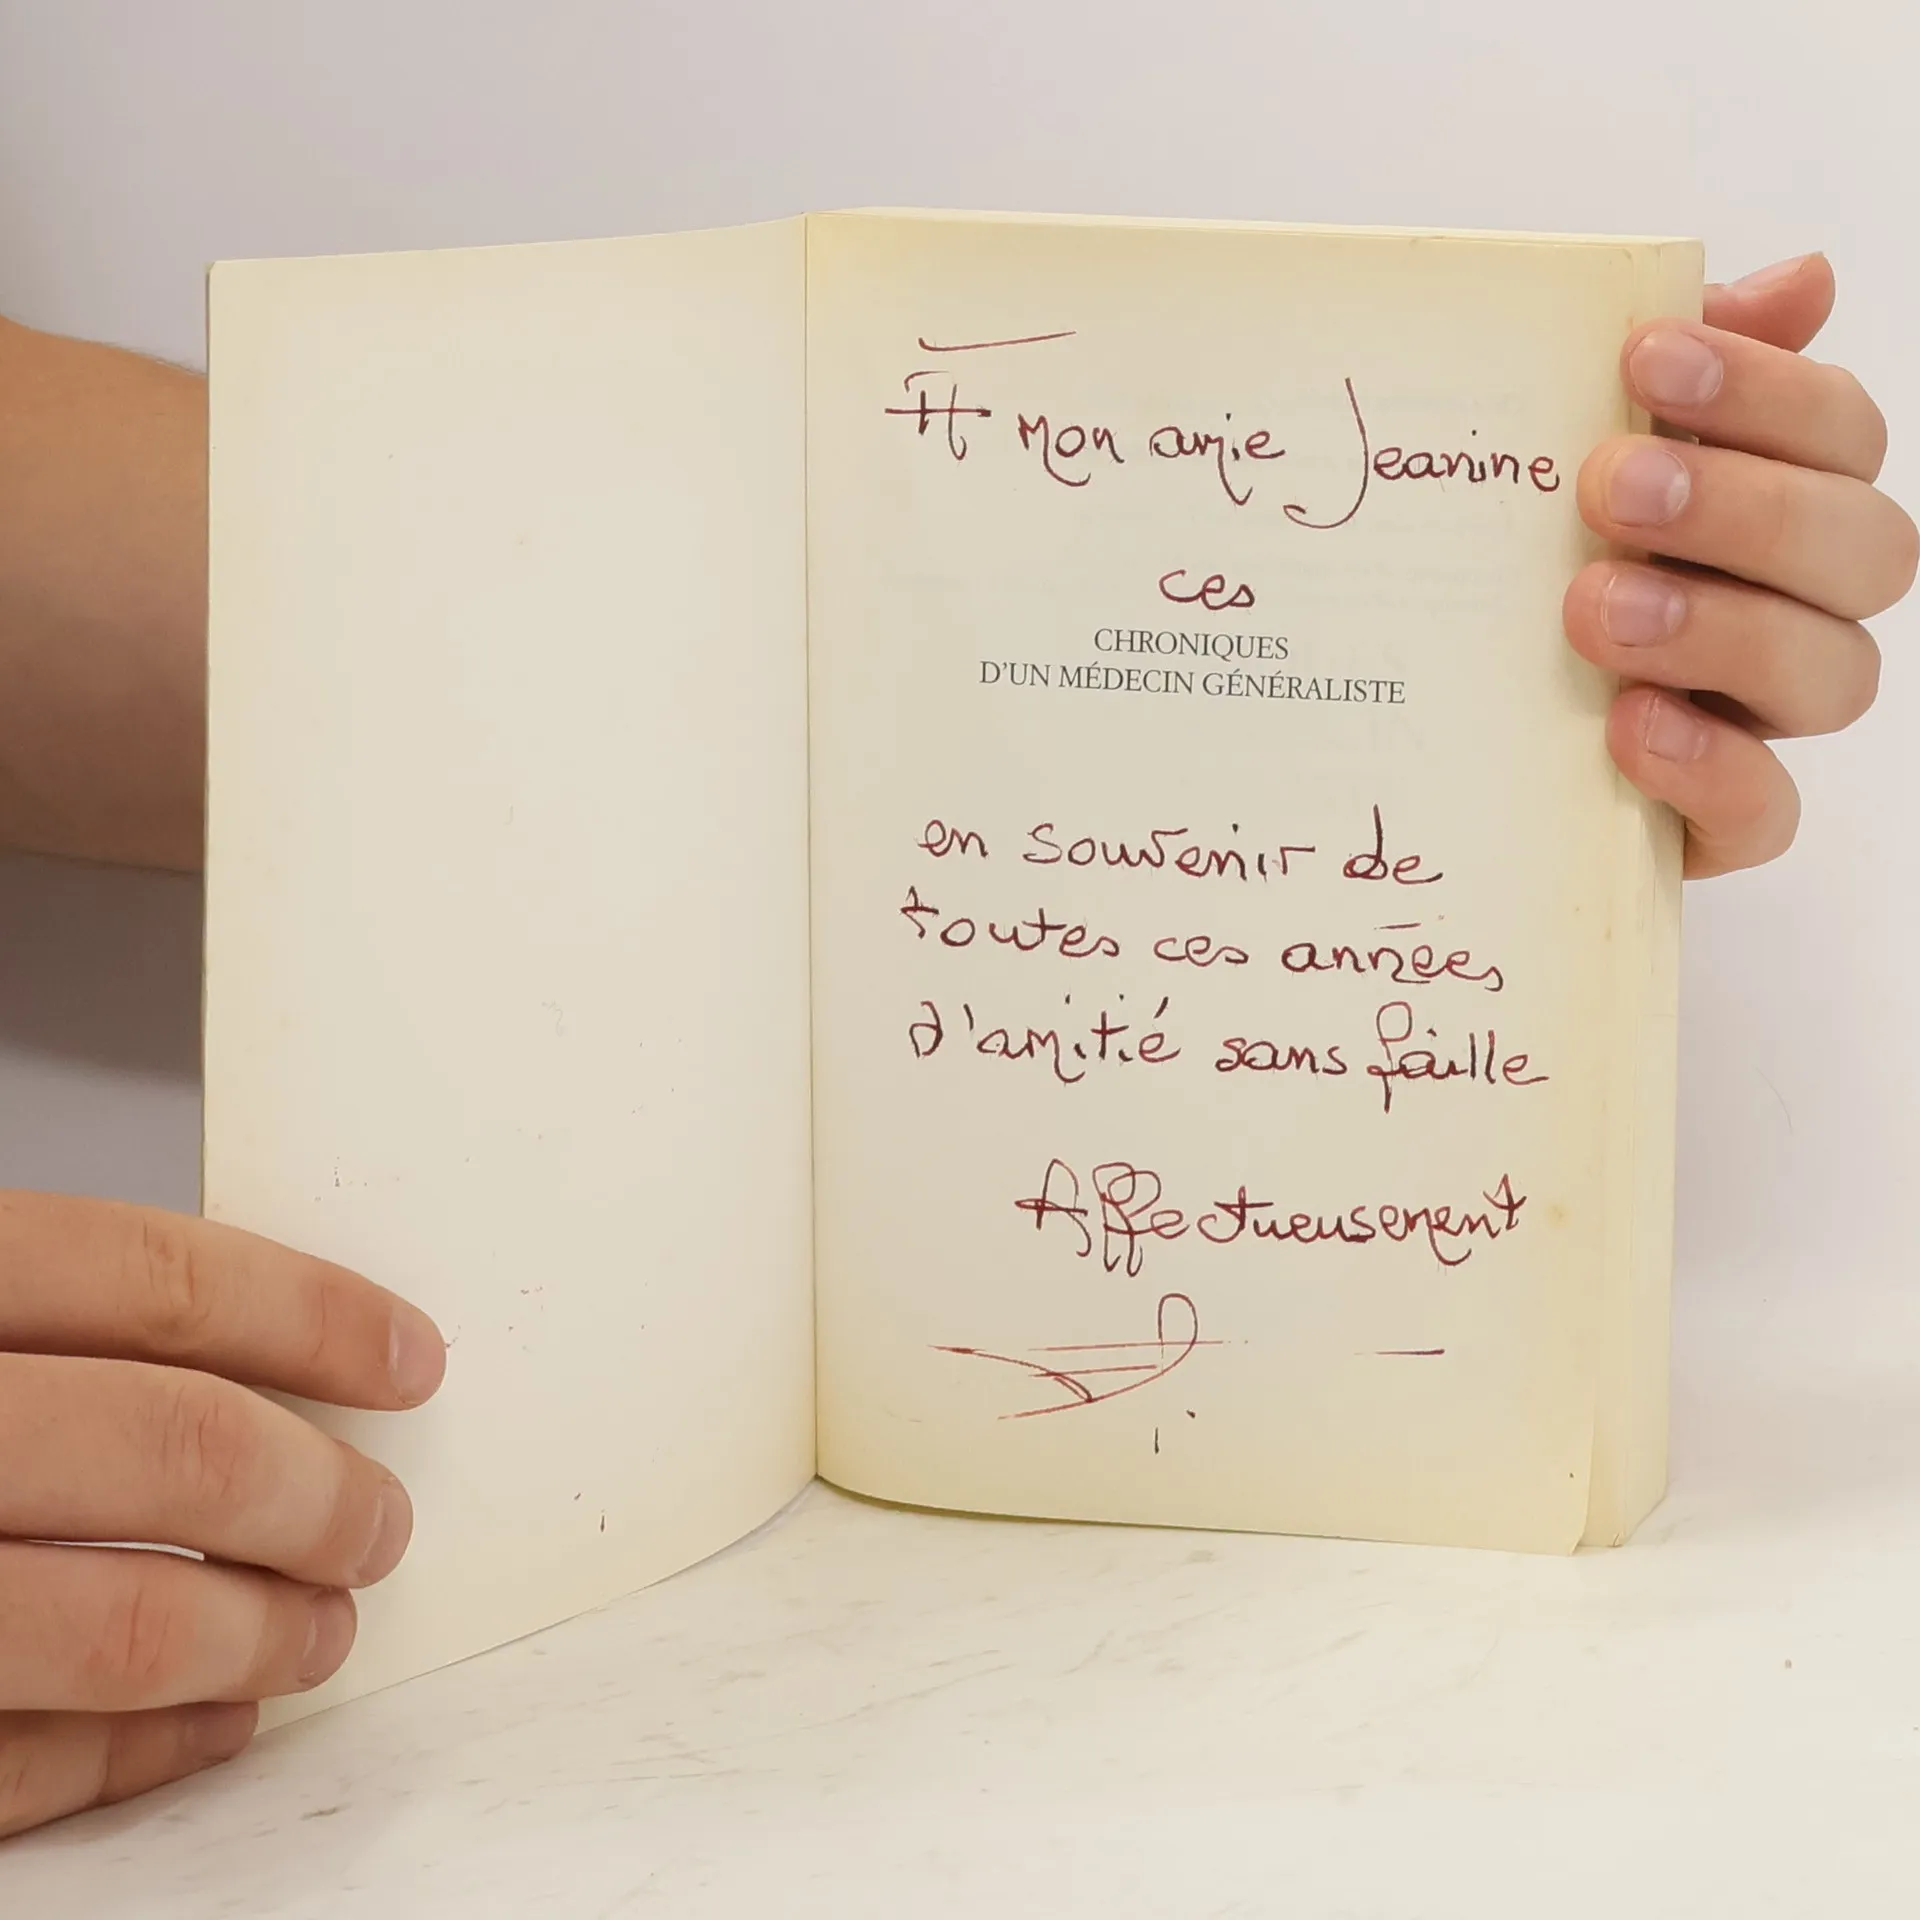 A mon amie Jeanine
ces
CHRONIQUES
D'UN MÉDECIN GÉNÉRALISTE
en souvenir de
toutes ces années
d'amitié sans faille
Affectueusement